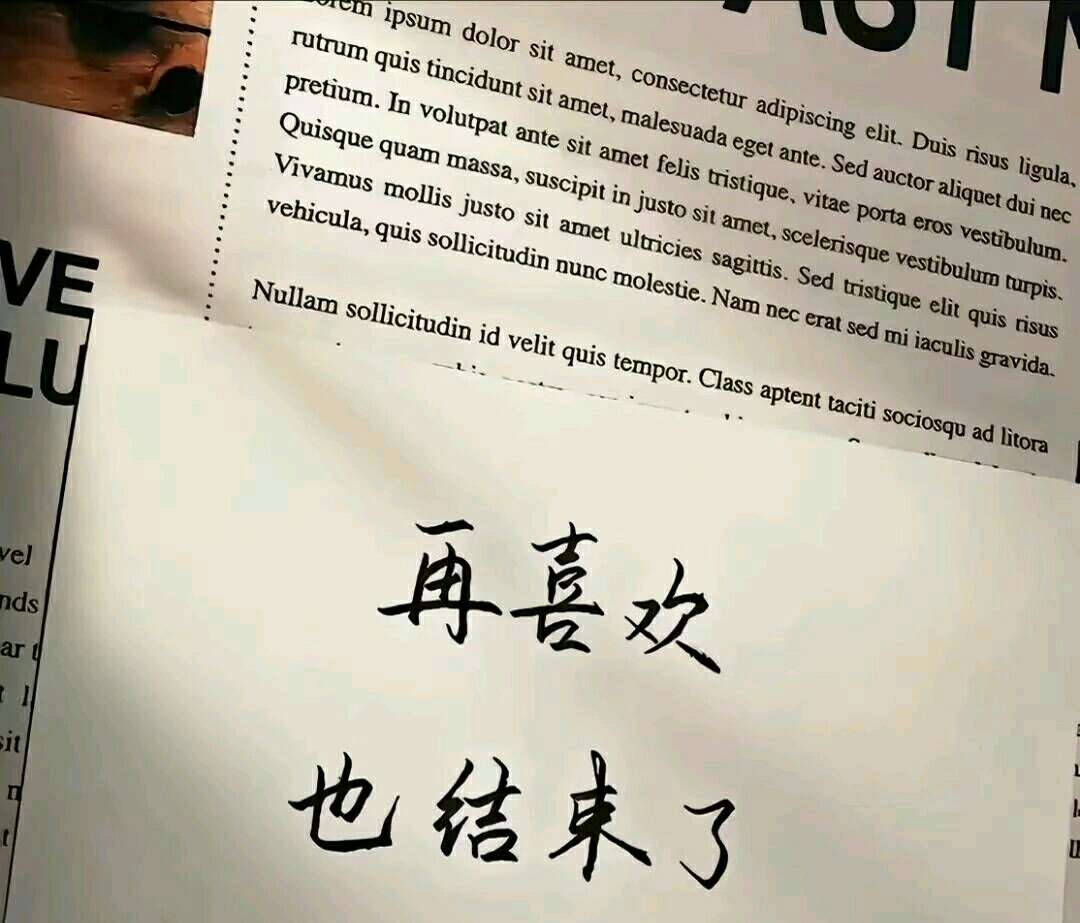 ipsum dolor sit amet, consectetur adipiscing elit. Duis risus ligula,
rutrum quis tincidunt sit amet, malesuada eget ante. Sed auctor aliquet dui nec
pretium. In volutpat ante sit amet felis tristique, vitae porta eros vestibulum.
Quisque quam massa, suscipit in justo sit amet, scelerisque vestibulum turpis.
Vivamus mollis justo sit amet ultricies sagittis. Sed tristique elit quis risus
vehicula, quis sollicitudin nunc molestie. Nam nec erat sed mi iaculis gravida.
Nullam sollicitudin id velit quis tempor. Class aptent taciti sociosqu ad litora
VE
LU
vel
nds
ar t
sit
n
t
再喜欢
也结束了